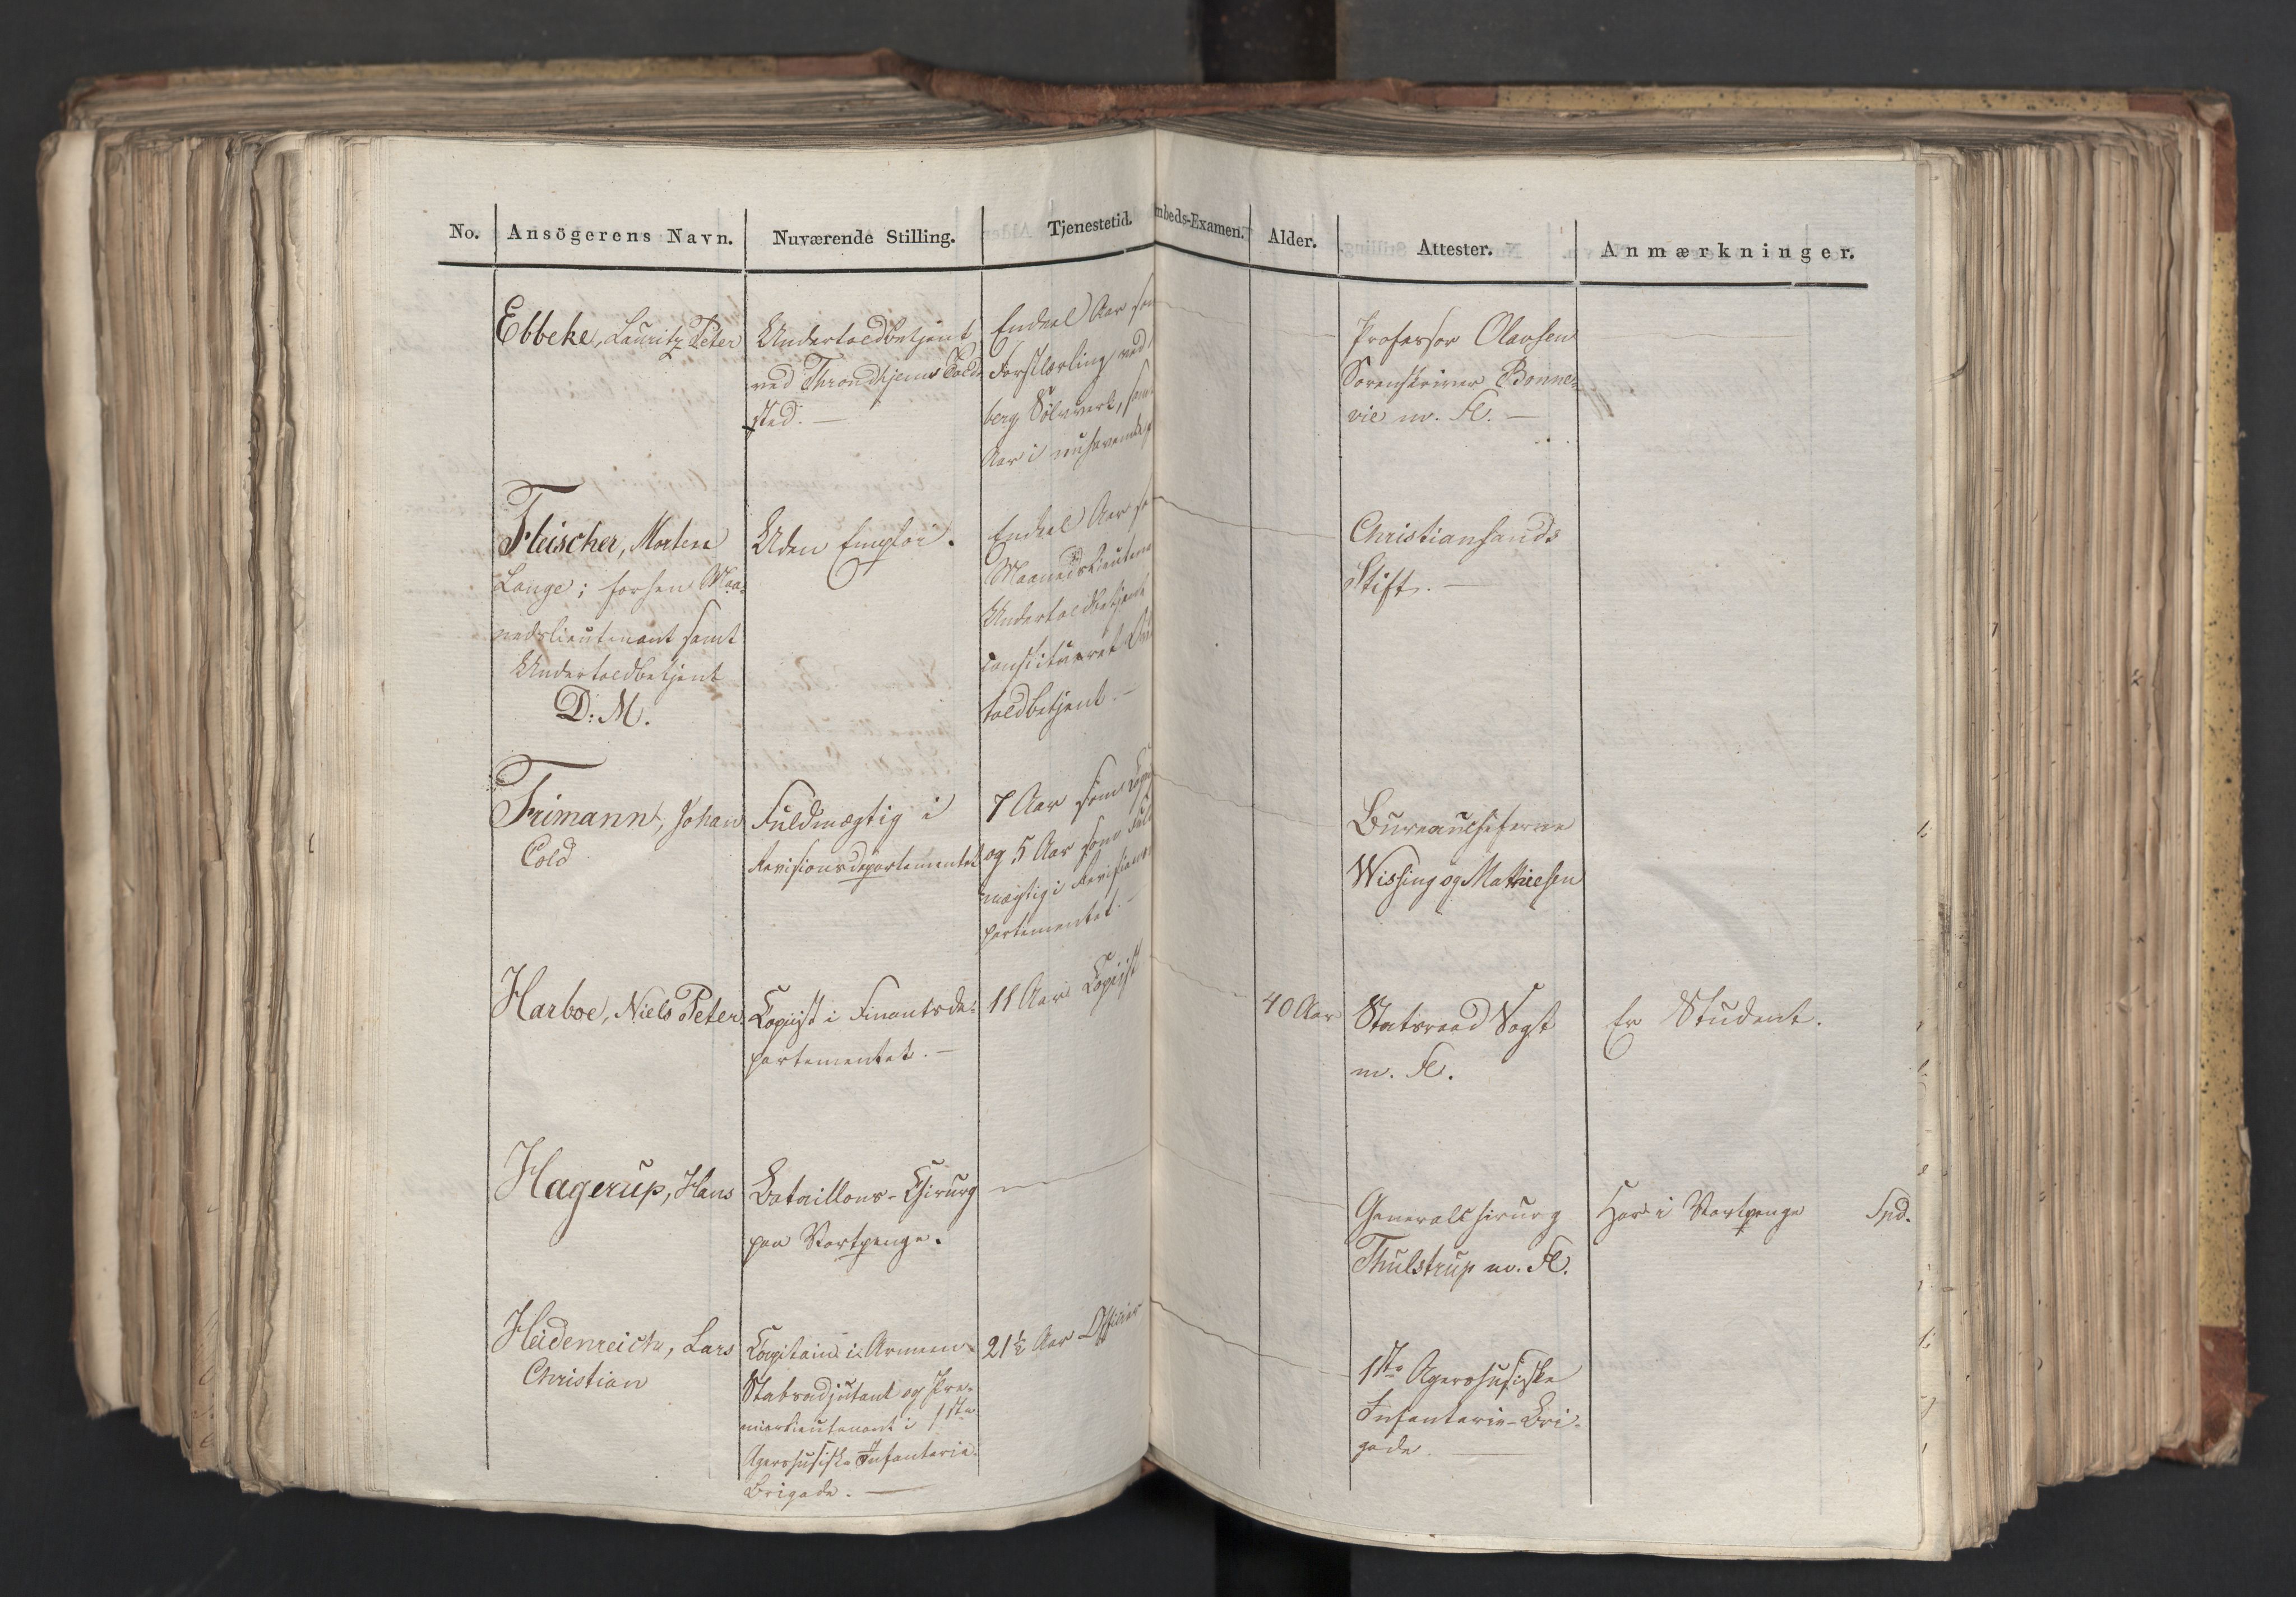 No. Ansögerens Navn. Nuværende Stilling. Tjenestetid. mbeds-Examen. Alder. Attester. Anmærkninger.
Ebbeke, Lauritz Peter
Undertoldbetjent
ved Throndhjems Told-
sted. —
Endeel Aar som
Forstlærling ved
berg Sølvverk, samt
Aar i nuhavende
Professor Olavsen
Sorenskriver Bonne-
vie m. Fl. —
Fleischer, Morten
Lange; forhen Maa-
nedslieutenant samt
Undertoldbetjent
D: M.
Uden Emploi.
Endeel Aar so
Maanedslieutena
Undertoldbetjent
constitueret Un
toldbetjent. —
Christiansands
Stift. —
Frimann, Johan
Cold
Fuldmægtig i
Revisionsdepartementet
7 Aar som Copi
og 5 Aar som Fuld
mægtig i Revisions
partementet. —
Bureaucheferne
Wissing og Mathiesen
Harboe, Niels Peter
Copiist i Finantsde-
partementet. —
11 Aar Copiist
40 Aar
Statsraad Vogt
m. Fl.
Er Student.
Hagerup, Hans
Bataillons-Chirurg
paa Vartpenge.
Generalchirurg
Thulstrup m. Fl.
Har i Vartpenge Spd.
Heidenreich, Lars
Christian
Capitain i Armeen
Stabsadjutant og Pre-
mierlieutenant i 1ste
Agershusiske Infanterie-
Brigade. —
21½ Aar Officier
1ste Agershusiske
Infanterie-Bri-
gade. —